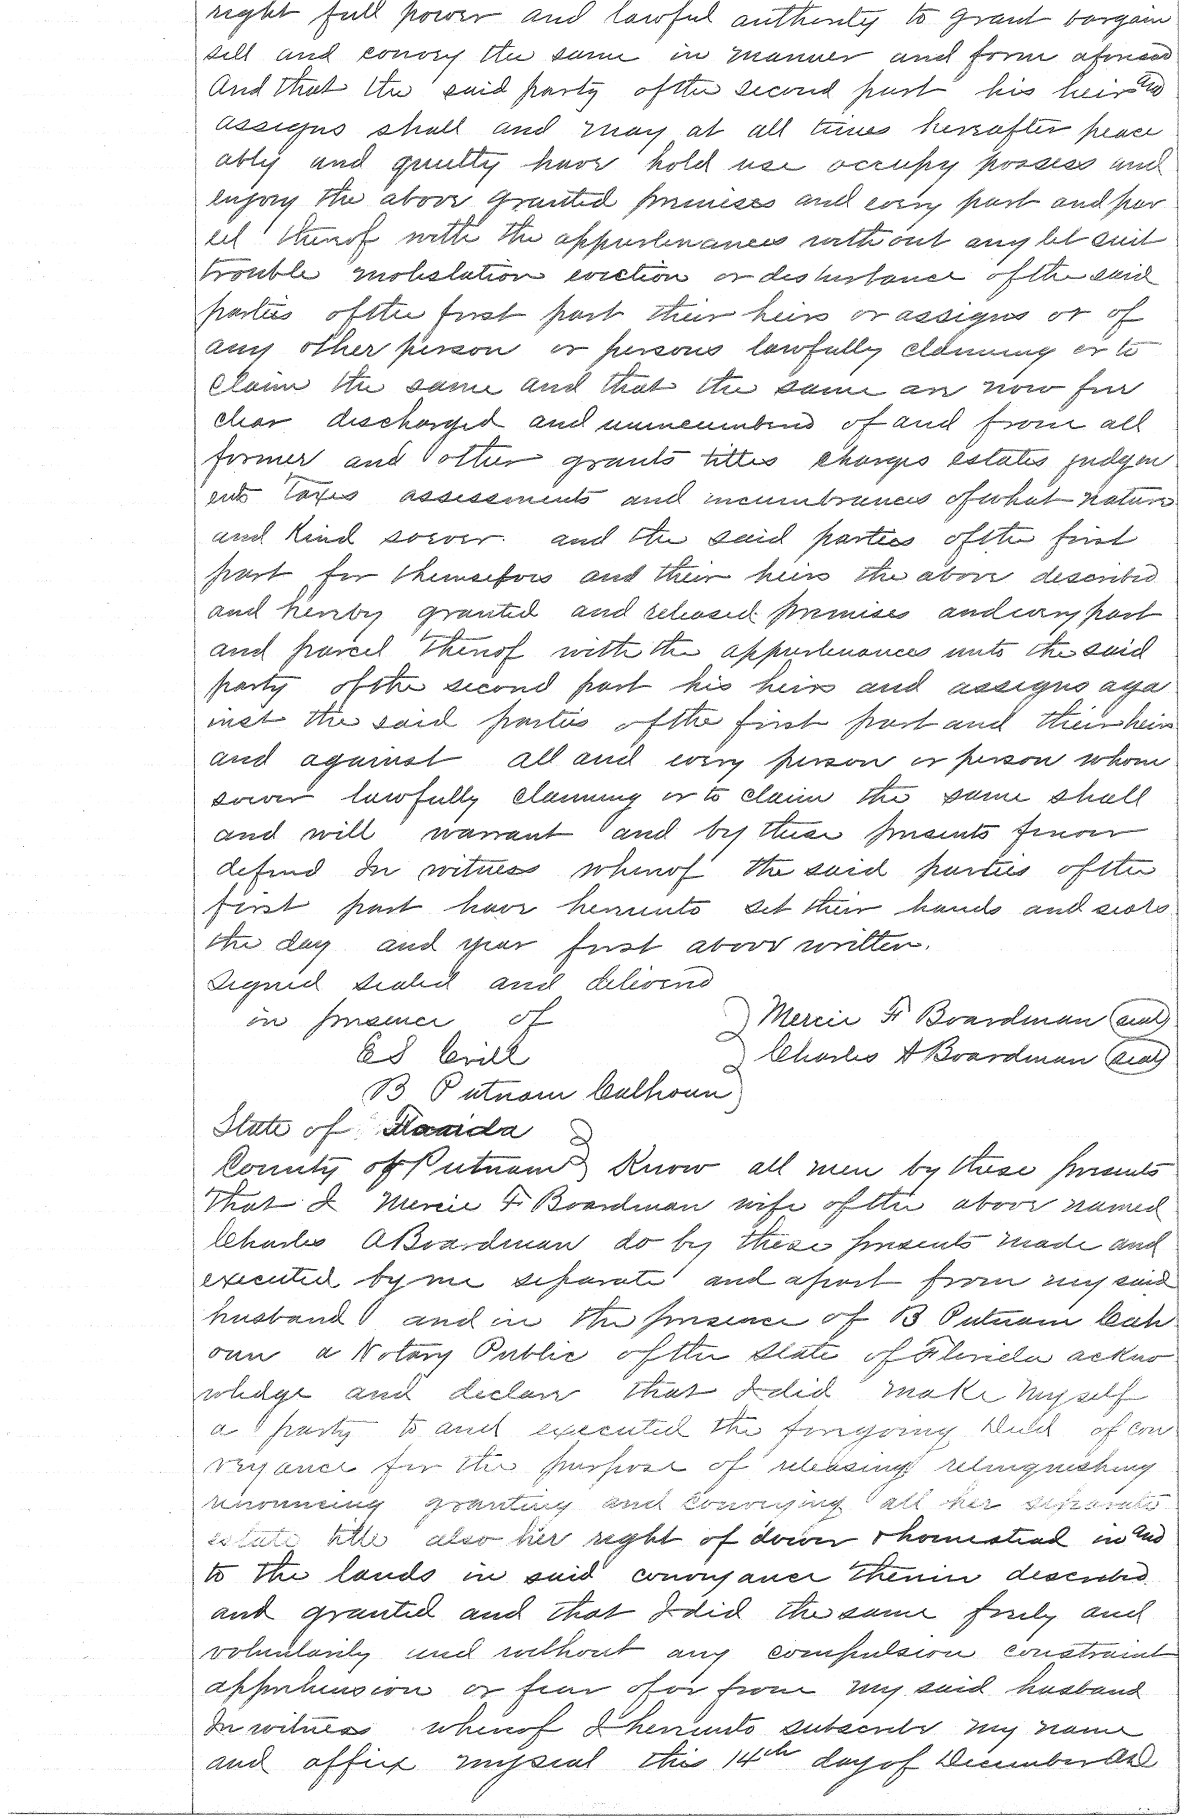 right full power and lawful authority to grant bargain
sell and convey the same in manner and form aforesaid
And that the said party of the second part his heirs and
assigns shall and may at all times hereafter peace
ably and quietly have hold use occupy possess and
enjoy the above granted premises and every part and par
cel thereof with the appurtenances without any let suit
trouble molestation eviction or disturbance of the said
parties of the first part their heirs or assigns or of
any other person or persons lawfully claiming or to
claim the same and that the same are now free
clear discharged and unincumbered of and from all
former and other grants titles charges estates judgm
ents Taxes assessments and incumbrances of what nature
and Kind soever. and the said parties of the first
part for themselves and their heirs the above described
and hereby granted and released premises and every part
and parcel thereof with the appurtenances unto the said
party of the second part his heirs and assigns aga
inst the said parties of the first part and their heirs
and against all and every person or person whom
soever lawfully claiming or to claim the same shall
and will warrant and by these presents forever
defend In witness whereof the said parties of the
first part have hereunto set their hands and seals
the day and year first above written.
Signed sealed and delivered
in presence of } Mercie F Boardman (seal)
E S Crill } Charles A Boardman (seal)
B Putnam Calhoun }
State of Florida }
County of Putnam } Know all men by these presents
that I Mercie F Boardman wife of the above named
Charles A Boardman do by these presents made and
executed by me separate and apart from my said
husband and in the presence of B Putnam Calh
oun a Notary Public of the State of Florida ackno
wledge and declare that I did make myself
a party to and executed the foregoing Deed of con
veyance for the purpose of releasing relinquishing
renouncing granting and conveying all her separate
estate title also her right of dower & homestead in and
to the lands in said conveyance therein described
and granted and that I did the same freely and
voluntarily and without any compulsion constraint
apprehension or fear of or from my said husband
In witness whereof I hereunto subscribe my name
and affix my seal this 14th day of December AD